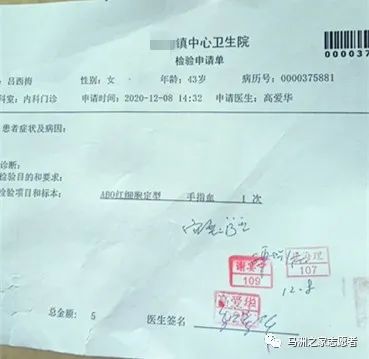 镇中心卫生院
检验申请单
00003
吕西梅 性别:女 年龄:43岁 病历号:0000375881
科室:内科门诊 申请时间:2020-12-08 14:32 申请医生:高爱华
患者症状及病因:
诊断:
检验目的和要求:
检验项目和标本: ABO红细胞定型 手指血 1 次
109
107
12.8
总金额: 5 医生签名
马洲之家志愿者